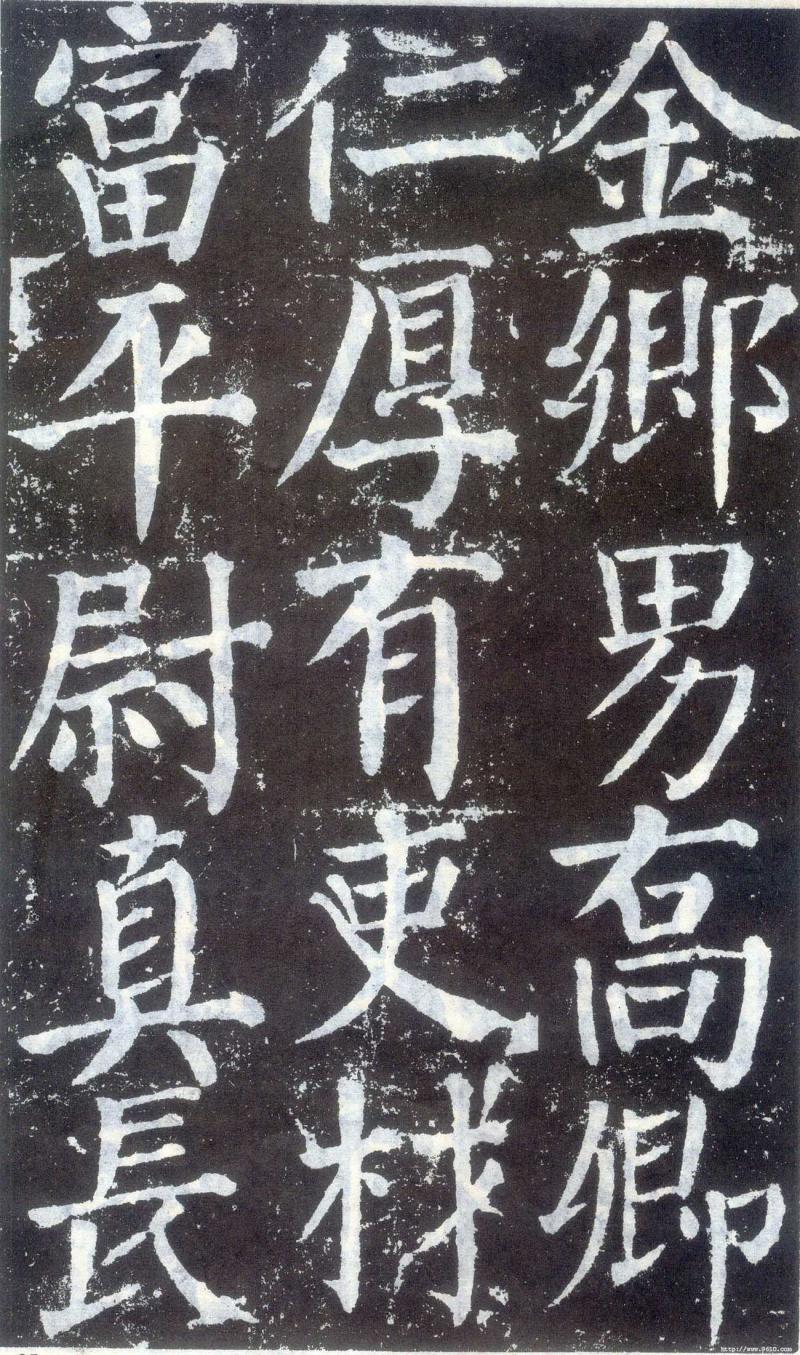 金鄉男高卿
仁厚有吏材
富平尉真長
http://www.9610.com